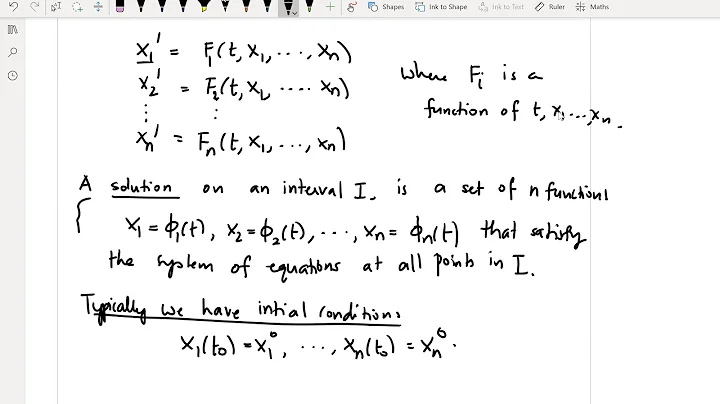 Shapes Ink to Shape Ink to Text Ruler Maths
x₁' = F₁(t, x₁, ..., xₙ)
x₂' = F₂(t, x₁, .... xₙ)
⋮ ⋮
xₙ' = Fₙ(t, x₁, ..., xₙ)
where Fᵢ is a
function of t, x₁ ..., xₙ.
A solution on an interval I. is a set of n functions
x₁ = ϕ₁(t), x₂ = ϕ₂(t), ..., xₙ = ϕₙ(t) that satisfy
the system of equations at all points in I.
Typically we have intial conditions
x₁(t₀) = x₁⁰, ..., xₙ(t₀) = xₙ⁰.